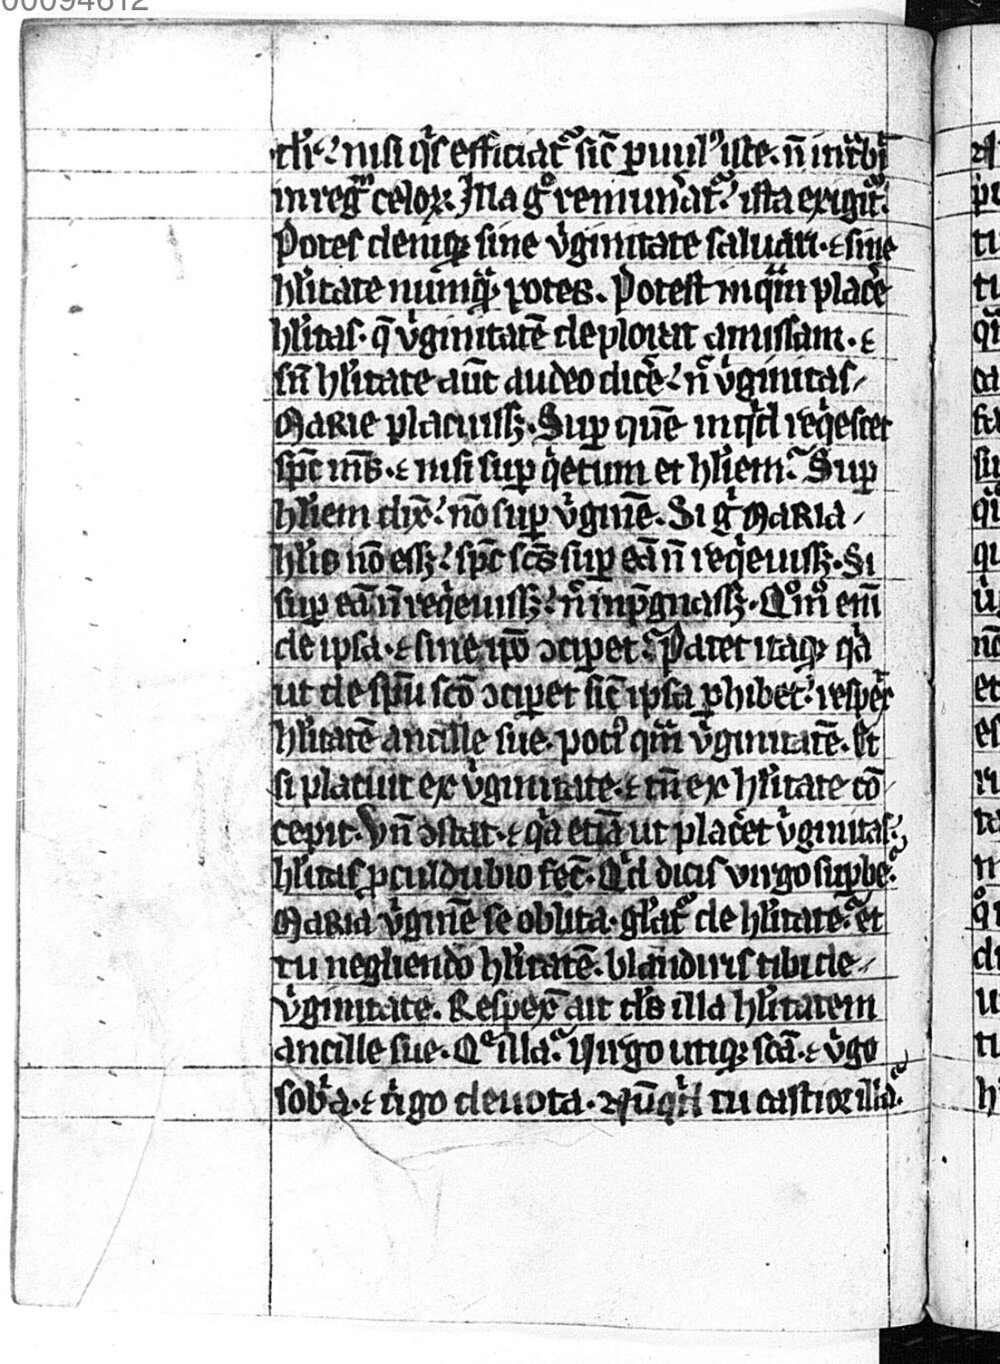 00094612
dn̄i· nisi qͥs efficiat᷑ sic̄ puul᷒ iste· n̄ intͣbit
in regͫ celoꝝ· Illa gͦ remun̄at᷑· ista exigit᷑·
Potes deniqꝫ sine ỽginitate saluari· ⁊ sine
hͥlitate nūqͣ potes. Potest inqͣm placē
hͥlitas· q̄ ỽginitatē deplorat amissam· ⁊
sn̄ hͥlitate aūt audeo dicē· n̄ ỽginitas
MARIE placuissꝫ· Suꝑ quē inqͥd reqͥescet
sp̄c m̄s· ⁊ nisi suꝑ qͥetum et hͥlem· Suꝑ
hͥlem dix̄· nō suꝑ ỽginē. Si gͥ MARIA
hͥlis nō essꝫ· sp̄c sc̄s suꝑ eā n̄ reqͥeuissꝫ· Si
suꝑ eā n̄ reqͥeuissꝫ· n̄ inp̄gnassꝫ· Qͦmͦ eni̅
de ipsa· ⁊ sine ip̄o ꝯciꝑet· Patet itaqꝫ qͥa
ut de sp̄u sc̄o ꝯciꝑet sic̄ ipsa ꝑhibet· respex̄
hͥlitatē ancille sue· potiꝰ qͣm ỽginitatē. Et
si placuit ex ỽginitate· ⁊ tn̄ ex hͥlitate cō
cepit· Vn̄ ꝯstat· ⁊ qͥa etiā ut placēt ỽginitas·
hͥlitas ꝓculdubio fec̄· Qͥd dicis virgo suꝑbe·
MARIA ỽginē se oblita· gl̄at᷑ de hͥlitate· et
tu negliendo hͥlitatē· blandiris tibi de
ỽginitate. Respex̄ ait d̄s illa hͥlitatem
ancille sue· Qͤ illa· Virgo utiqꝫ sc̄a· ⁊ ỽgo
sobͥa· ⁊ ỽgo deuota· Nūqͥd tu castior illa·